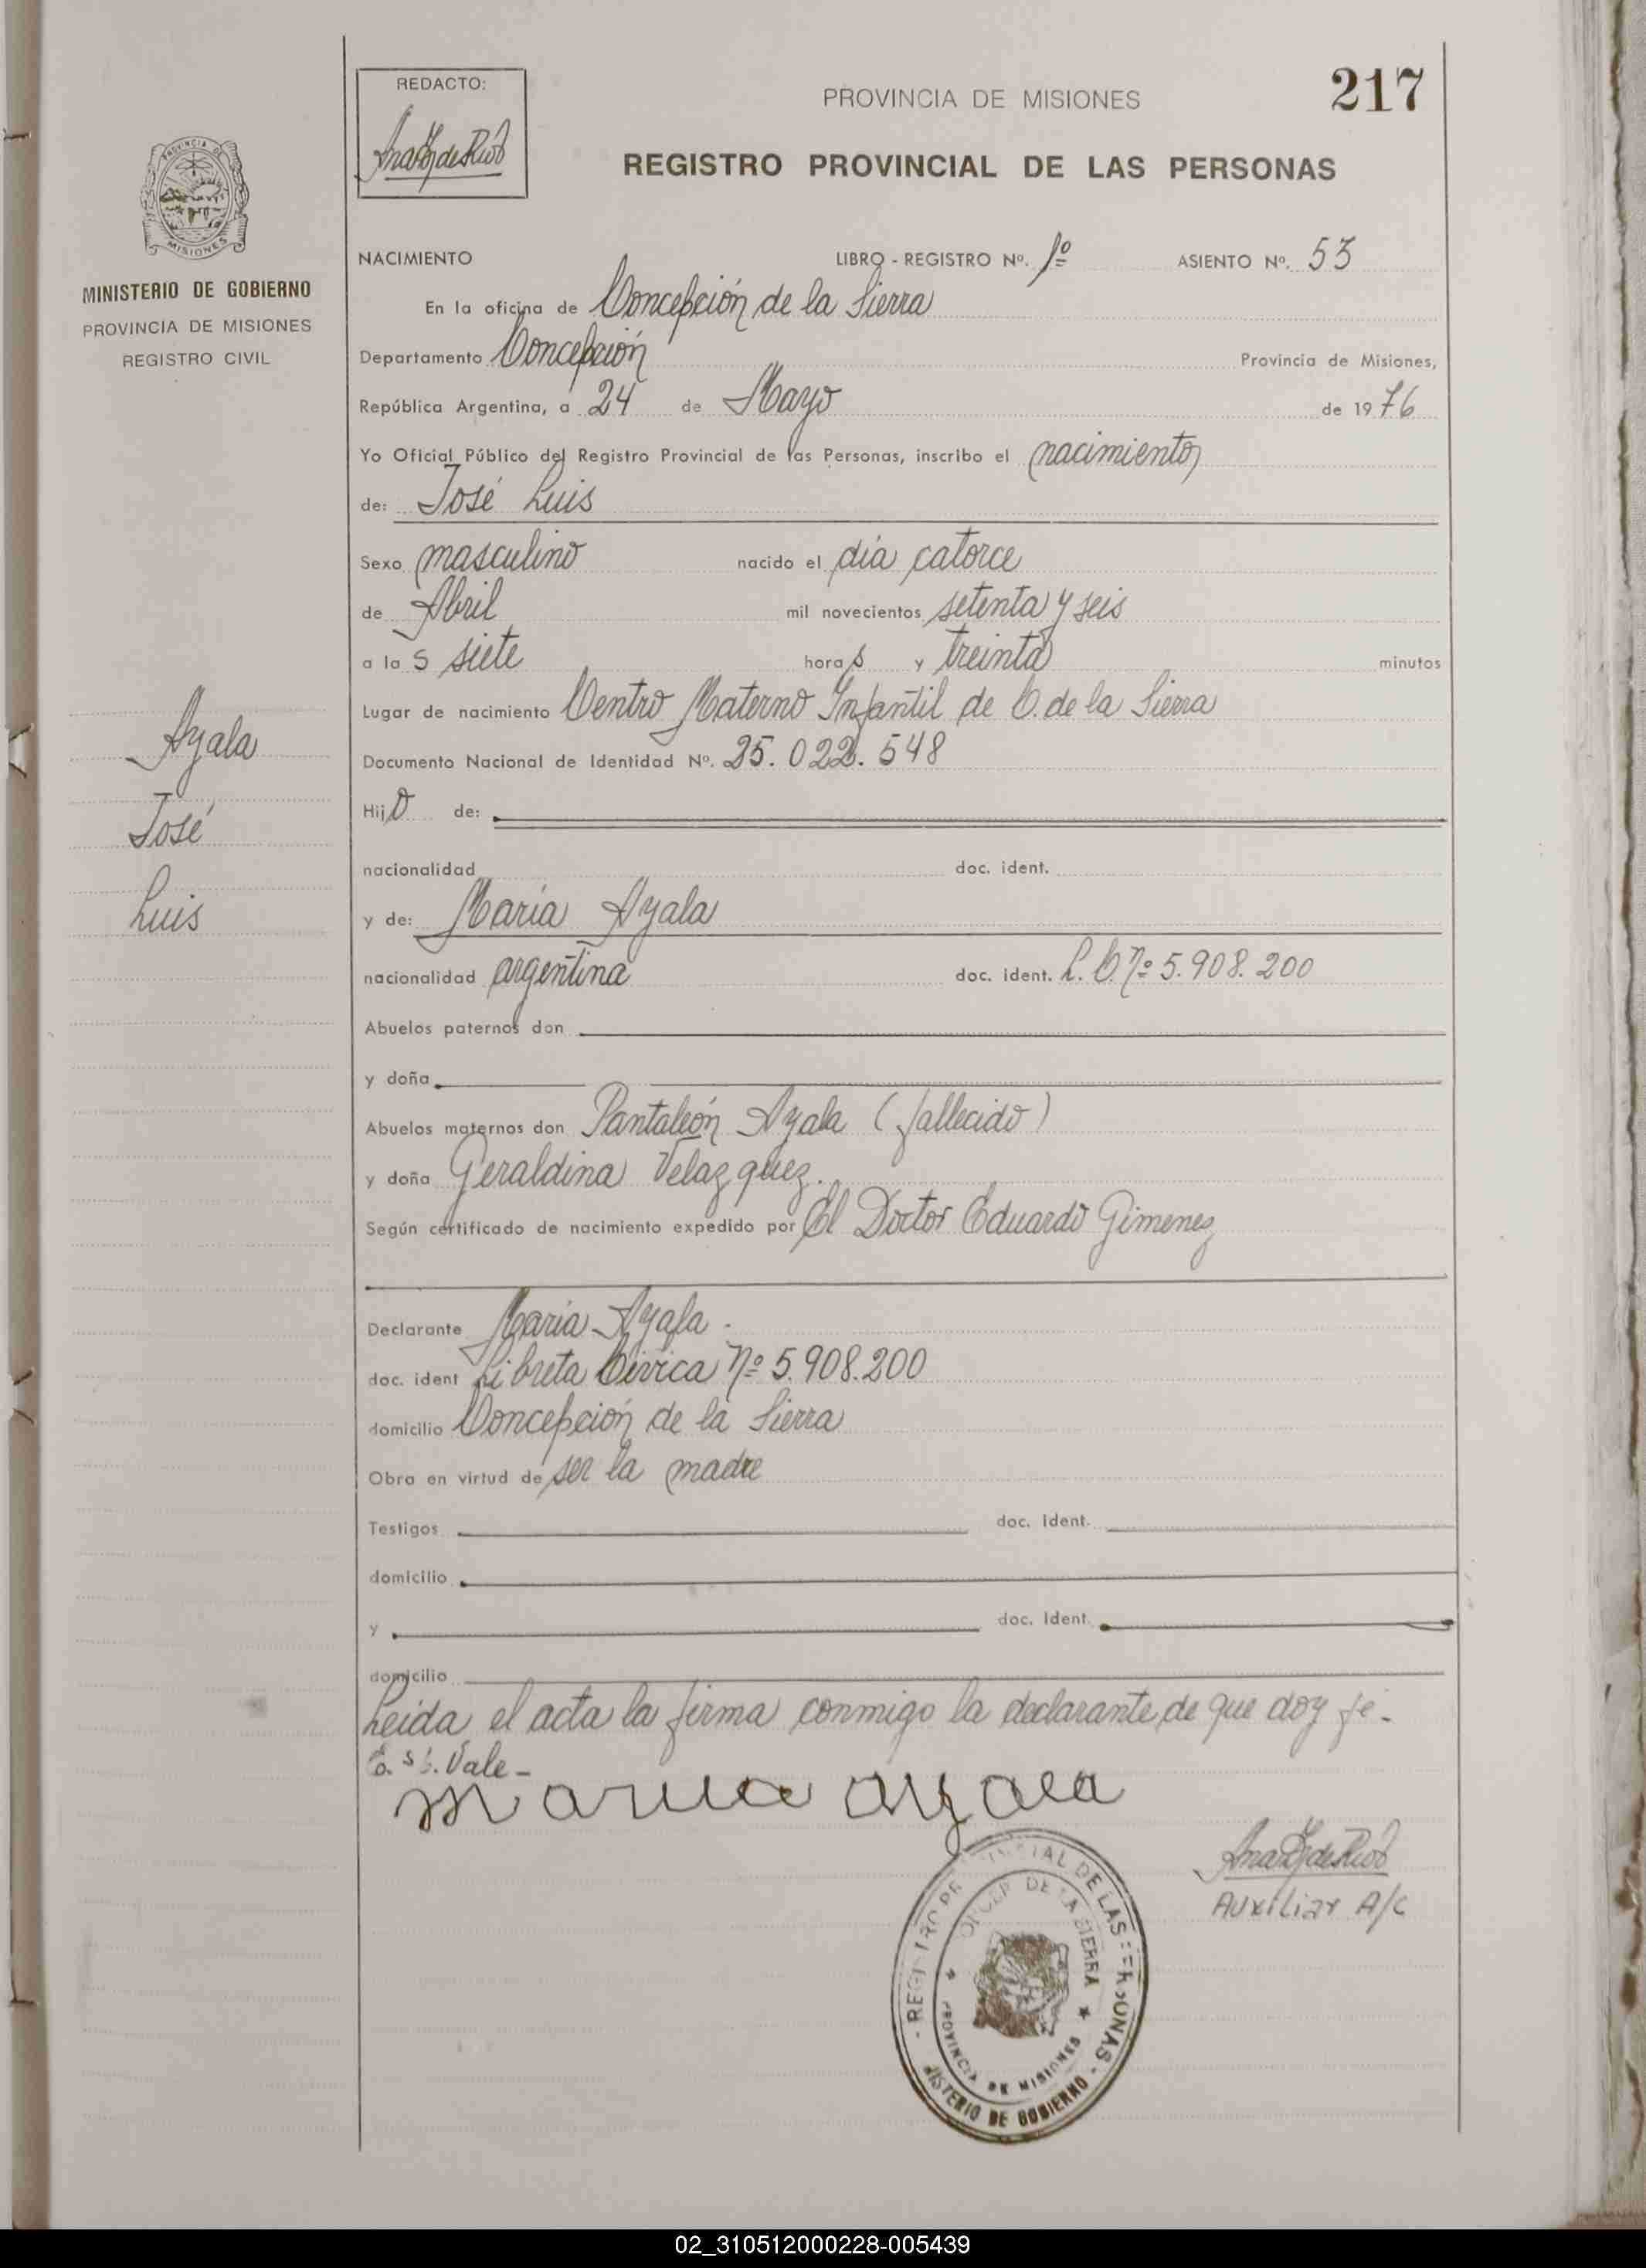 217
REDACTO:
PROVINCIA DE MISIONES
REGISTRO PROVINCIAL DE LAS PERSONAS
PROVINCIA DE
MISIONES
MINISTERIO DE GOBIERNO
PROVINCIA DE MISIONES
REGISTRO CIVIL
NACIMIENTO LIBRO - REGISTRO Nº. 1º ASIENTO Nº. 53
En la oficina de Concepción de la Sierra
Departamento Concepción Provincia de Misiones,
República Argentina, a 24 de Mayo de 1976
Yo Oficial Público del Registro Provincial de las Personas, inscribo el nacimiento
de: José Luis
Sexo masculino nacido el día catorce
de Abril mil novecientos setenta y seis
a las siete horas y treinta minutos
Lugar de nacimiento Centro Materno Infantil de C. de la Sierra
Documento Nacional de Identidad Nº. 25.022.548
Hijo de:
nacionalidad doc. ident.
y de: María Ayala
nacionalidad argentina doc. ident. L.C. Nº 5.908.200
Abuelos paternos don
y doña
Abuelos maternos don Pantaleón Ayala (fallecido)
y doña Geraldina Velazquez.
Según certificado de nacimiento expedido por El Doctor Eduardo Gimenez
Declarante María Ayala.
doc. ident Libreta Cívica Nº 5.908.200
domicilio Concepción de la Sierra
Obra en virtud de ser la madre
Testigos doc. ident.
domicilio
y doc. ident.
domicilio
Leida el acta la firma conmigo la declarante de que doy fé.-
Vale-
Ayala
José
Luis
maria ayala
Auxiliar A/C
DE LAS PERSONAS
DE LA SIERRA
PROVINCIA DE MISIONES
DE GOBIERNO
02_310512000228-005439